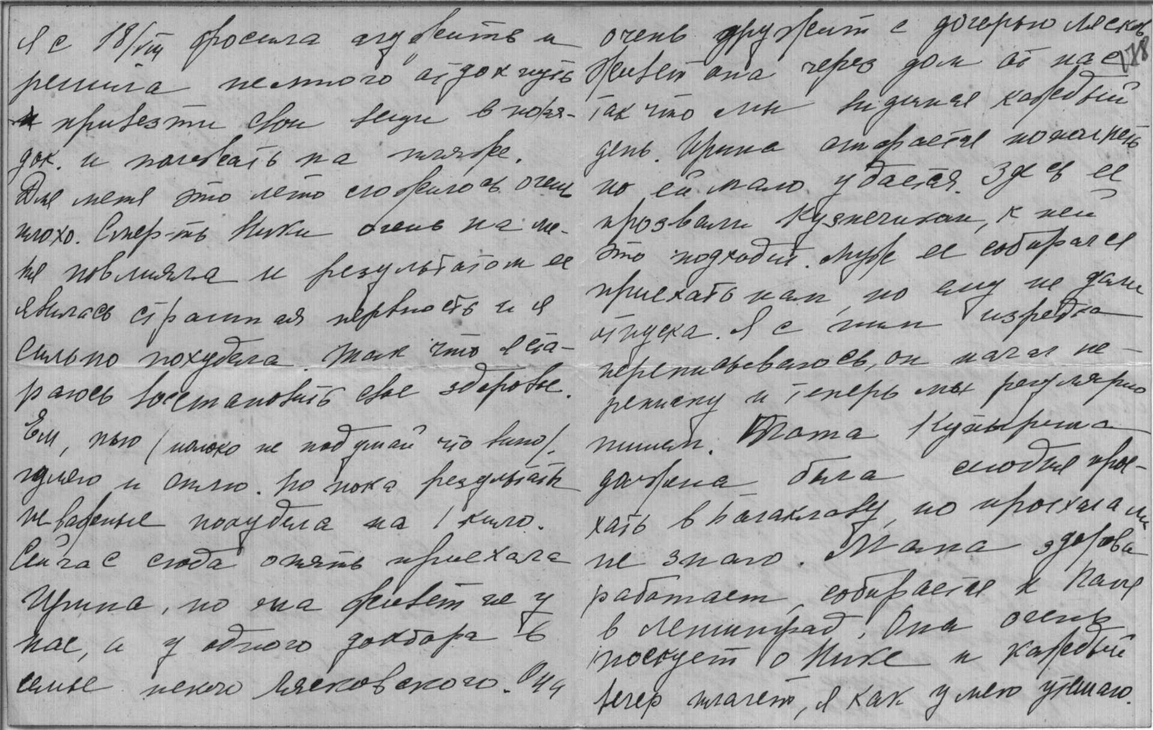 Я с 18/VIII бросила служить и
решила немного отдохнуть
и привезти свои вещи в поря-
док. и полежать на пляже.
Для меня это лето сложилось очень
плохо. Смерть Ники очень на ме-
ня повлияла и результатом ее
явилась страшная нервность и я
сильно похудела. Так что я ста-
раюсь восстановить свое здоровье.
Ем, пью (молоко не подумай что вино).
гуляю и сплю. Но пока результаты
не важные похудела на 1 кило.
Сейчас сюда опять приехала
Ирина, но она живет не у
нас, а у одного доктора в
семье некого Лясковского. Она
очень дружит с дочерью Лясков.
178
Живет она через дом от нас
так что мы видимся каждый
день. Ирина старается похудеть
но ей мало удается. Здесь ее
прозвали Кузнечиком, к ней
это подходит. Муж ее собирался
приехать к нам но ему не дали
отпуска. Я с ним изредка
переписываюсь, он начал пе-
реписку и теперь мы регулярно
пишем. Тата
должна была сегодня прое-
хать в Балаклаву, но проехала ли
не знаю. Мама здорова
работает, собирается к
в Ленинград. Она очень
тоскует о Нике и каждый
вечер плачет, я как умею утешаю.